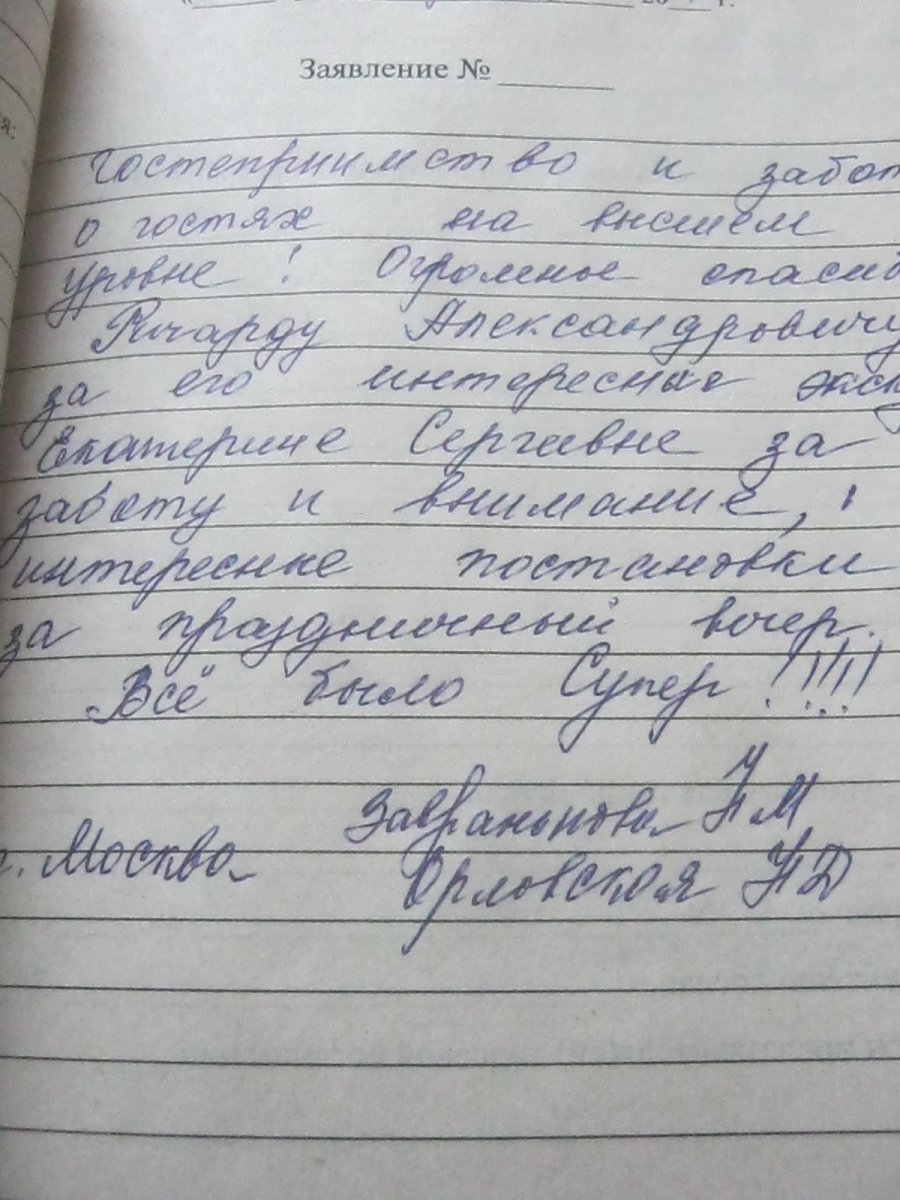 Заявление №
Гостеприимство и забот
о гостях на высшем
уровне! Огромное спасиб
Ричарду Александровичу
за его интересные экск
Екатерине Сергеевне за
заботу и внимание,
интересные постановки
за праздничный вечер.
Всё было Супер!!!!!
г. Москва
Орловская НД